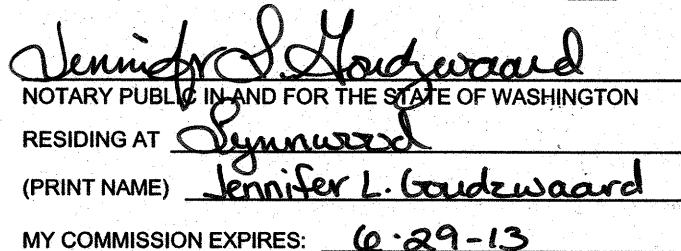 Jennifer L. Goudzwaard
NOTARY PUBLIC IN AND FOR THE STATE OF WASHINGTON
RESIDING AT Lynnwood
(PRINT NAME) Jennifer L. Goudzwaard
MY COMMISSION EXPIRES: 6-29-13